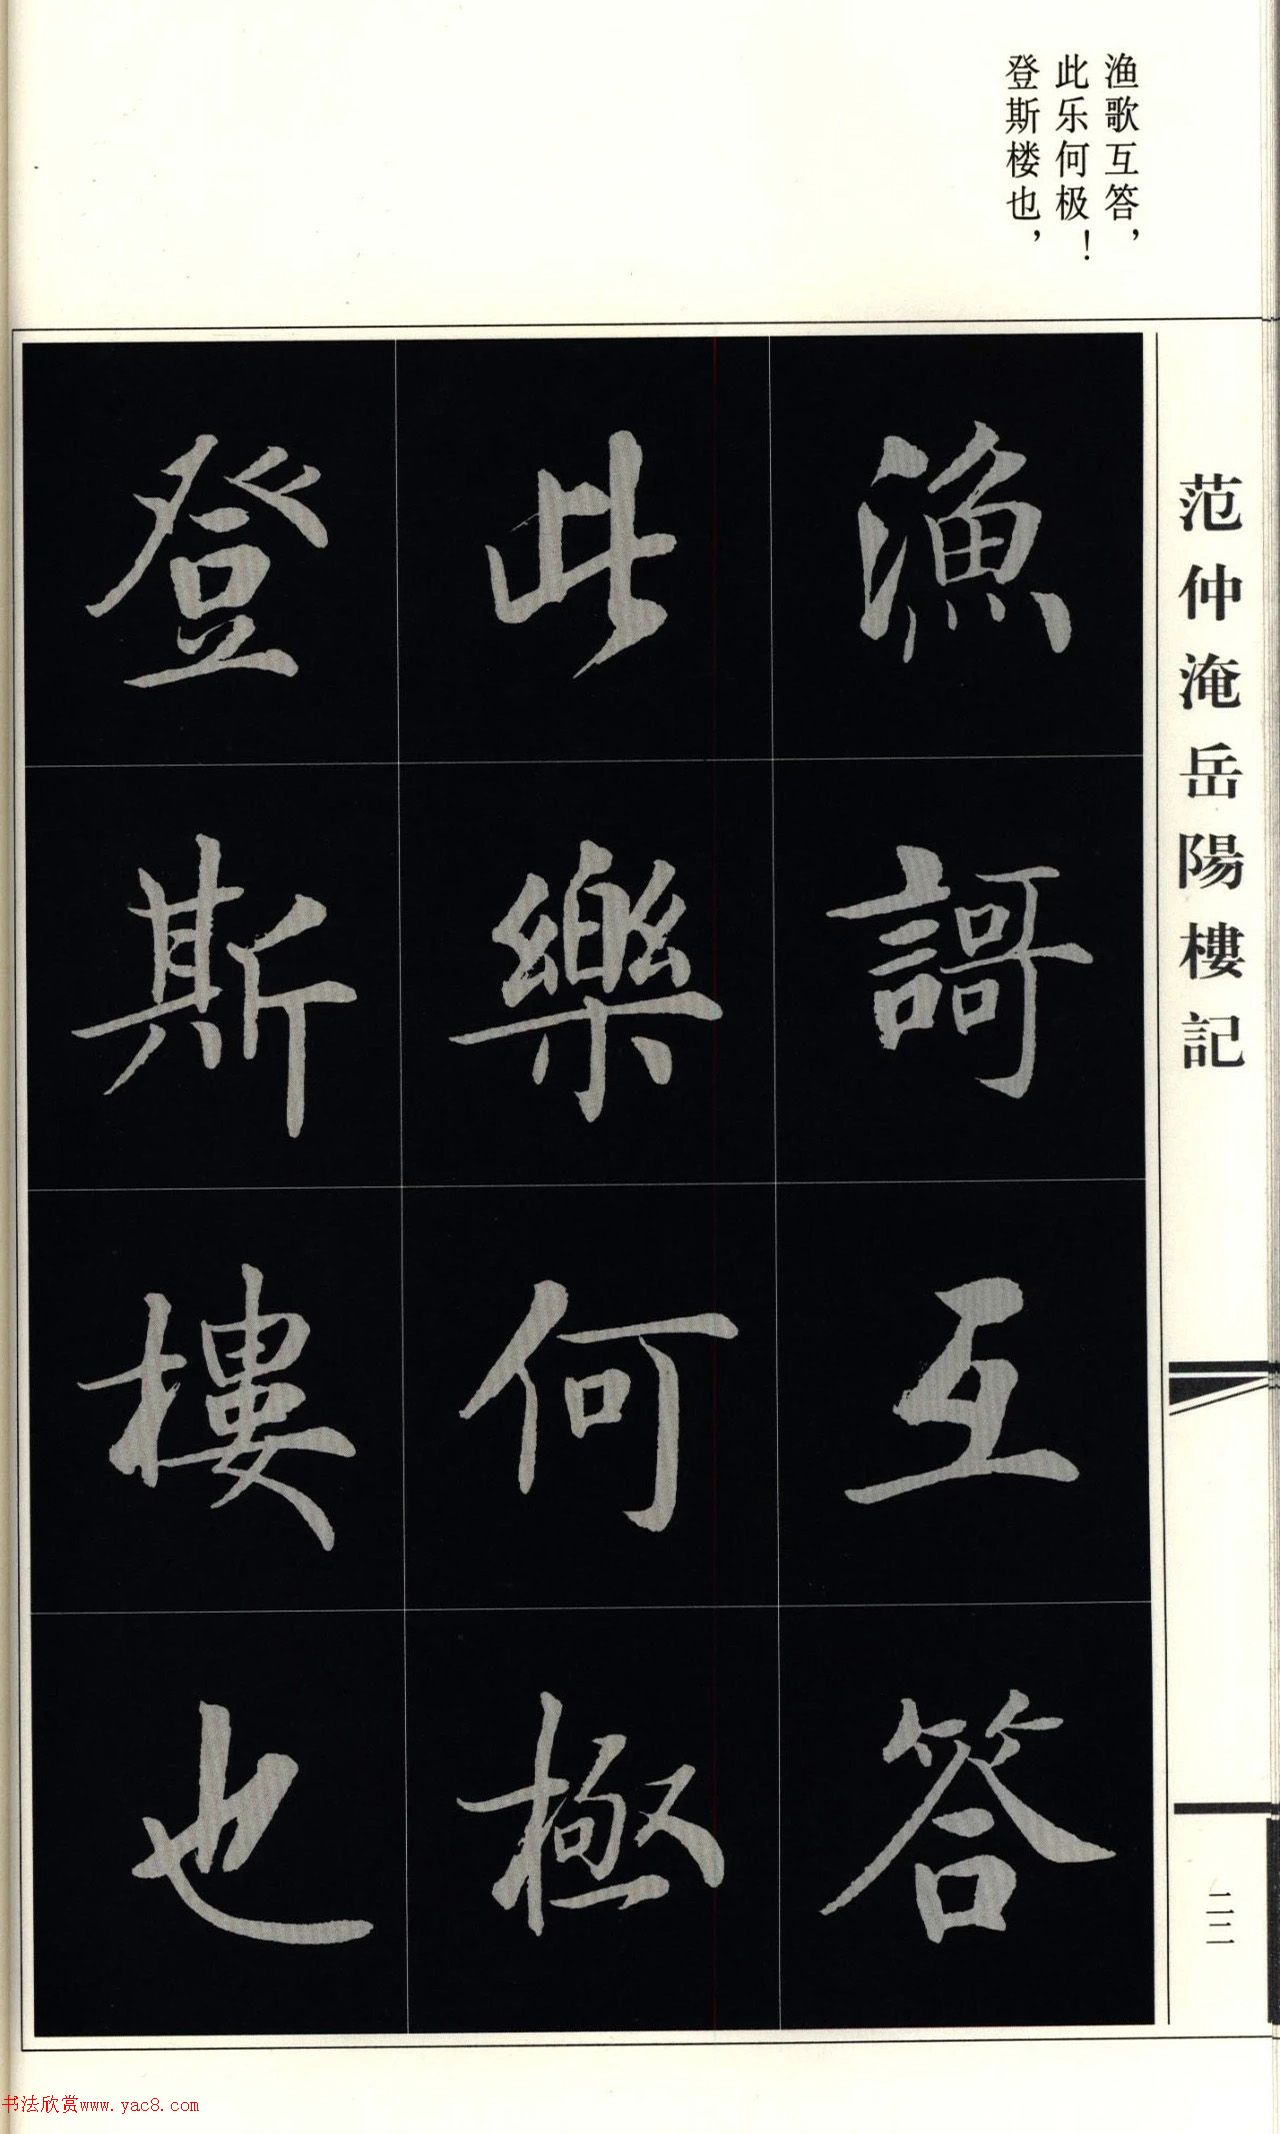 渔歌互答，
此乐何极！
登斯楼也，
范仲淹岳陽樓記
漁謌互答
此樂何極
登斯樓也
二二
书法欣赏www.yac8.com